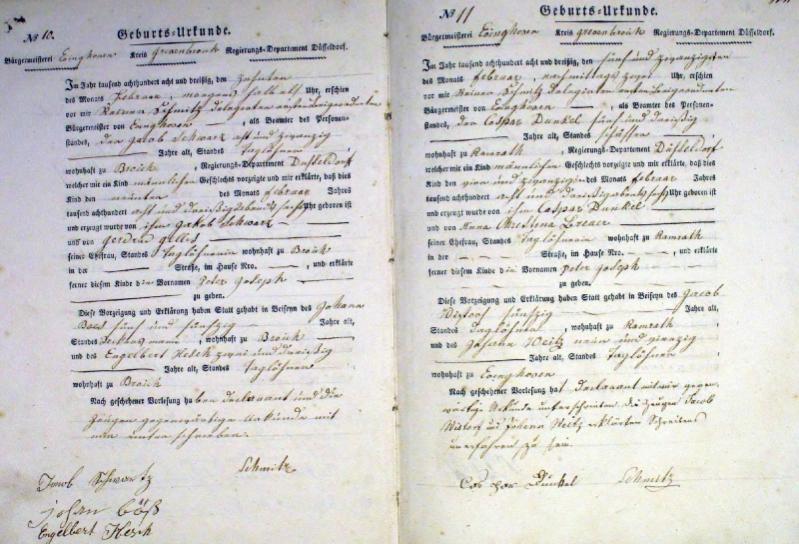 No 10. Geburts-Urkunde.
Bürgermeisterei Evinghoven Kreis Grevenbroich Regierungs-Departement Düsseldorf.
Im Jahr tausend achthundert acht und dreißig, den zehnten
des Monats Februar, morgens halb elf Uhr, erschien
vor mir Schmitz delegirten
Bürgermeister von Evinghoven, als Beamter des Personen-
standes, der Jacob Schwartz acht und zwanzig
Jahre alt, Standes Taglöhner
wohnhaft zu Broich, Regierungs-Departement Düsseldorf
welcher mir ein Kind männlichen Geschlechts vorzeigte und mir erklärte, daß dies
Kind den neunten des Monats Februar Jahres
tausend achthundert acht und dreißig Abends sechs Uhr geboren ist
und erzeugt wurde von ihm Jakob Schwartz
und von Gerdrud
seiner Ehefrau, Standes Taglöhnerin wohnhaft zu Broich
in der Straße, im Hause Nro. , und erklärte
ferner diesem Kinde die Vornamen Peter Joseph
zu geben.
Diese Vorzeigung und Erklärung haben Statt gehabt in Beiseyn des Johann
Böß fünf und fünfzig Jahre alt,
Standes Ackersmann, wohnhaft zu Broich
und des Engelbert Hesch zwei und dreißig
Jahre alt, Standes Taglöhner
wohnhaft zu Broich
Nach geschehener Vorlesung haben Declarant und die
Zeugen gegenwärtige Urkunde mit
mir unterschrieben.
Jacob Schwartz
Schmitz
johan böß
Engelbert Hesch
No 11 Geburts-Urkunde.
Bürgermeisterei Evinghoven Kreis Grevenbroich Regierungs-Departement Düsseldorf.
Im Jahr tausend achthundert acht und dreißig, den fünf und zwanzigsten
des Monats Februar, nachmittags zwei Uhr, erschien
vor mir Schmitz delegirten
Bürgermeister von Evinghoven, als Beamter des Personen-
standes, der Caspar Dunkel fünf und dreißig
Jahre alt, Standes
wohnhaft zu Ramrath, Regierungs-Departement Düsseldorf
welcher mir ein Kind männlichen Geschlechts vorzeigte und mir erklärte, daß dies
Kind den vier und zwanzigsten des Monats Februar Jahres
tausend achthundert acht und dreißig Abends sechs Uhr geboren ist
und erzeugt wurde von ihm Caspar Dunkel
und von Anna Christina
seiner Ehefrau, Standes Taglöhnerin wohnhaft zu Ramrath
in der Straße, im Hause Nro. , und erklärte
ferner diesem Kinde die Vornamen Peter Joseph
zu geben.
Diese Vorzeigung und Erklärung haben Statt gehabt in Beiseyn des Jacob
fünfzig Jahre alt,
Standes Taglöhner, wohnhaft zu Ramrath
und des Johann Weitz neun und zwanzig
Jahre alt, Standes Taglöhner
wohnhaft zu Evinghoven
Nach geschehener Vorlesung hat Declarant mit mir gegen-
wärtige Urkunde unterschrieben. Die Zeugen Jacob
und Johann Weitz erklärten Schreibens
unerfahren zu sein.
Cas par Dünkel Schmitz